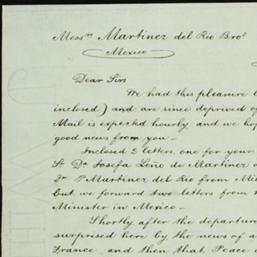 Messrs Martinez del Rio Bros
Mexico
Dear Sirs
We had this pleasure
inclosed) and are since deprived of
Mail is expected hourly and we hop
good news from you -
Inclosed 2 letters, one for your
Sa Da Josefa Leño de Martinez
Dr P Martinez del Rio from
But we forward two letters from
Minister in Mexico -
Shortly after the departur
surprised here by the news of a
France, and then that, Peace